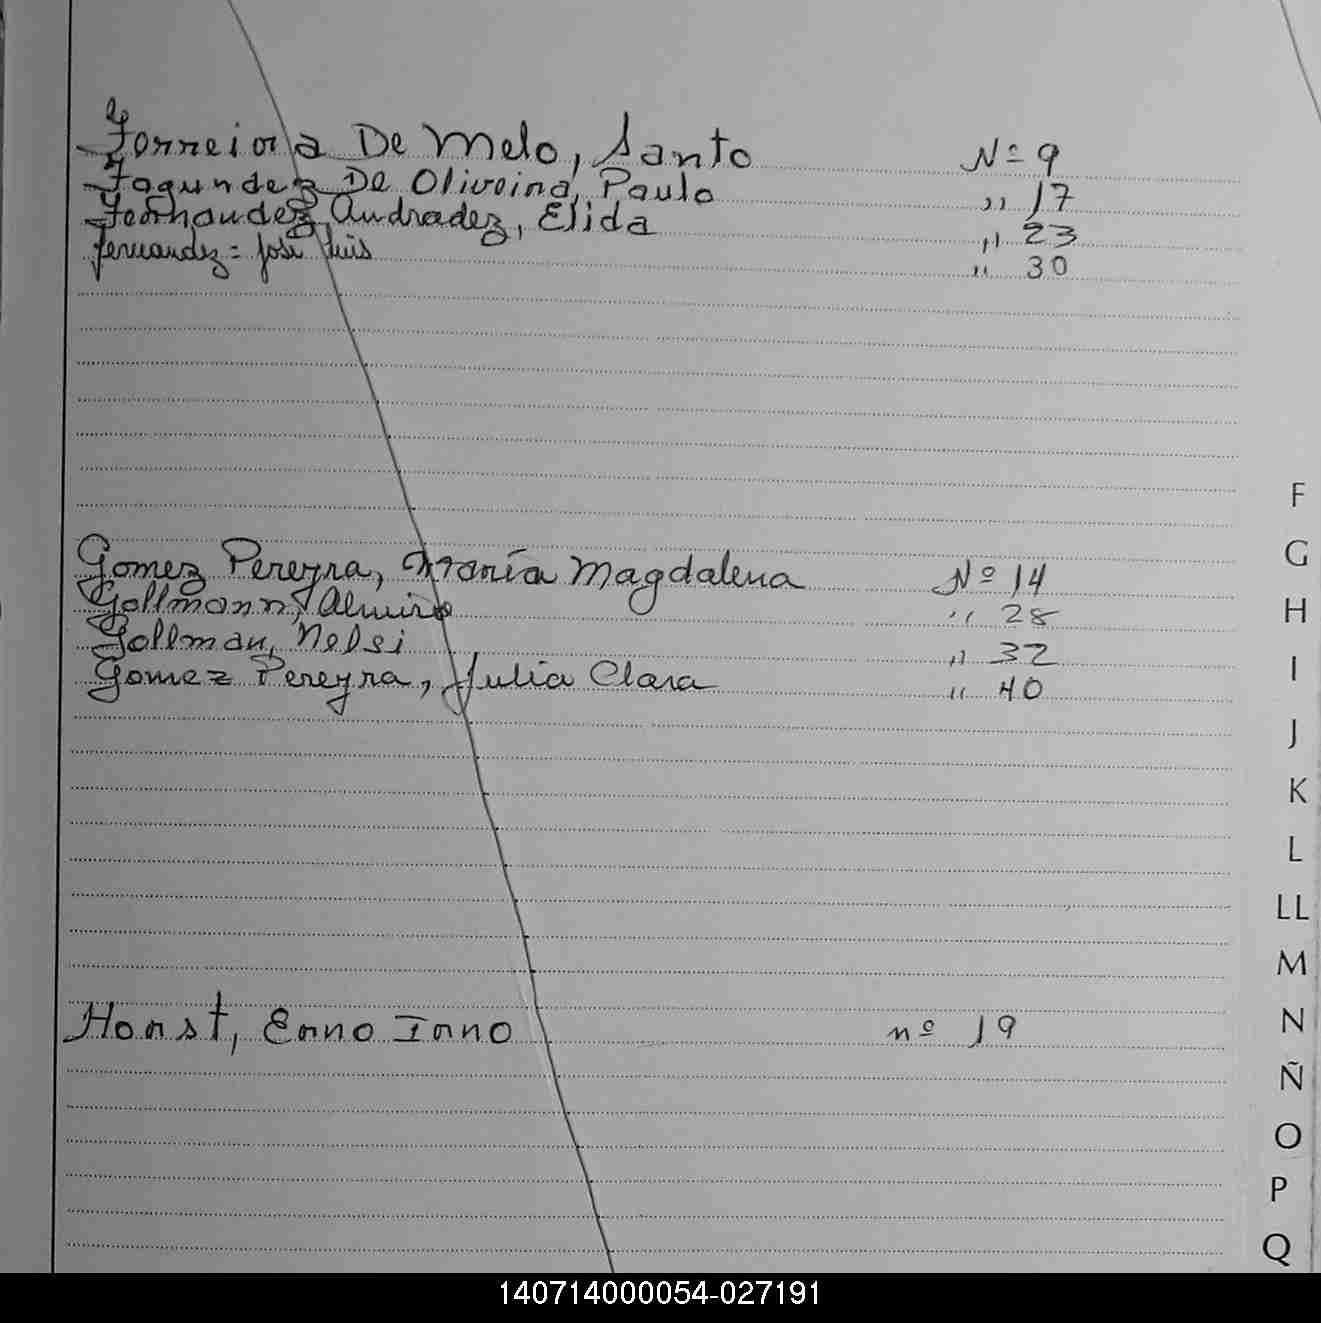 Ferreira De Melo, Santo Nº 9
Fagundez De Oliveira, Paulo " 17
Fernandez Andradez, Elida " 23
Fernandez = José Luis " 30
Gomez Pereyra, María Magdalena Nº 14
Gollmann, Almiro " 28
Gollman, Nelsi " 32
Gomez Pereyra, Julia Clara " 40
Horst, Enno Inno nº 19
F
G
H
I
J
K
L
LL
M
N
Ñ
O
P
Q
140714000054-027191